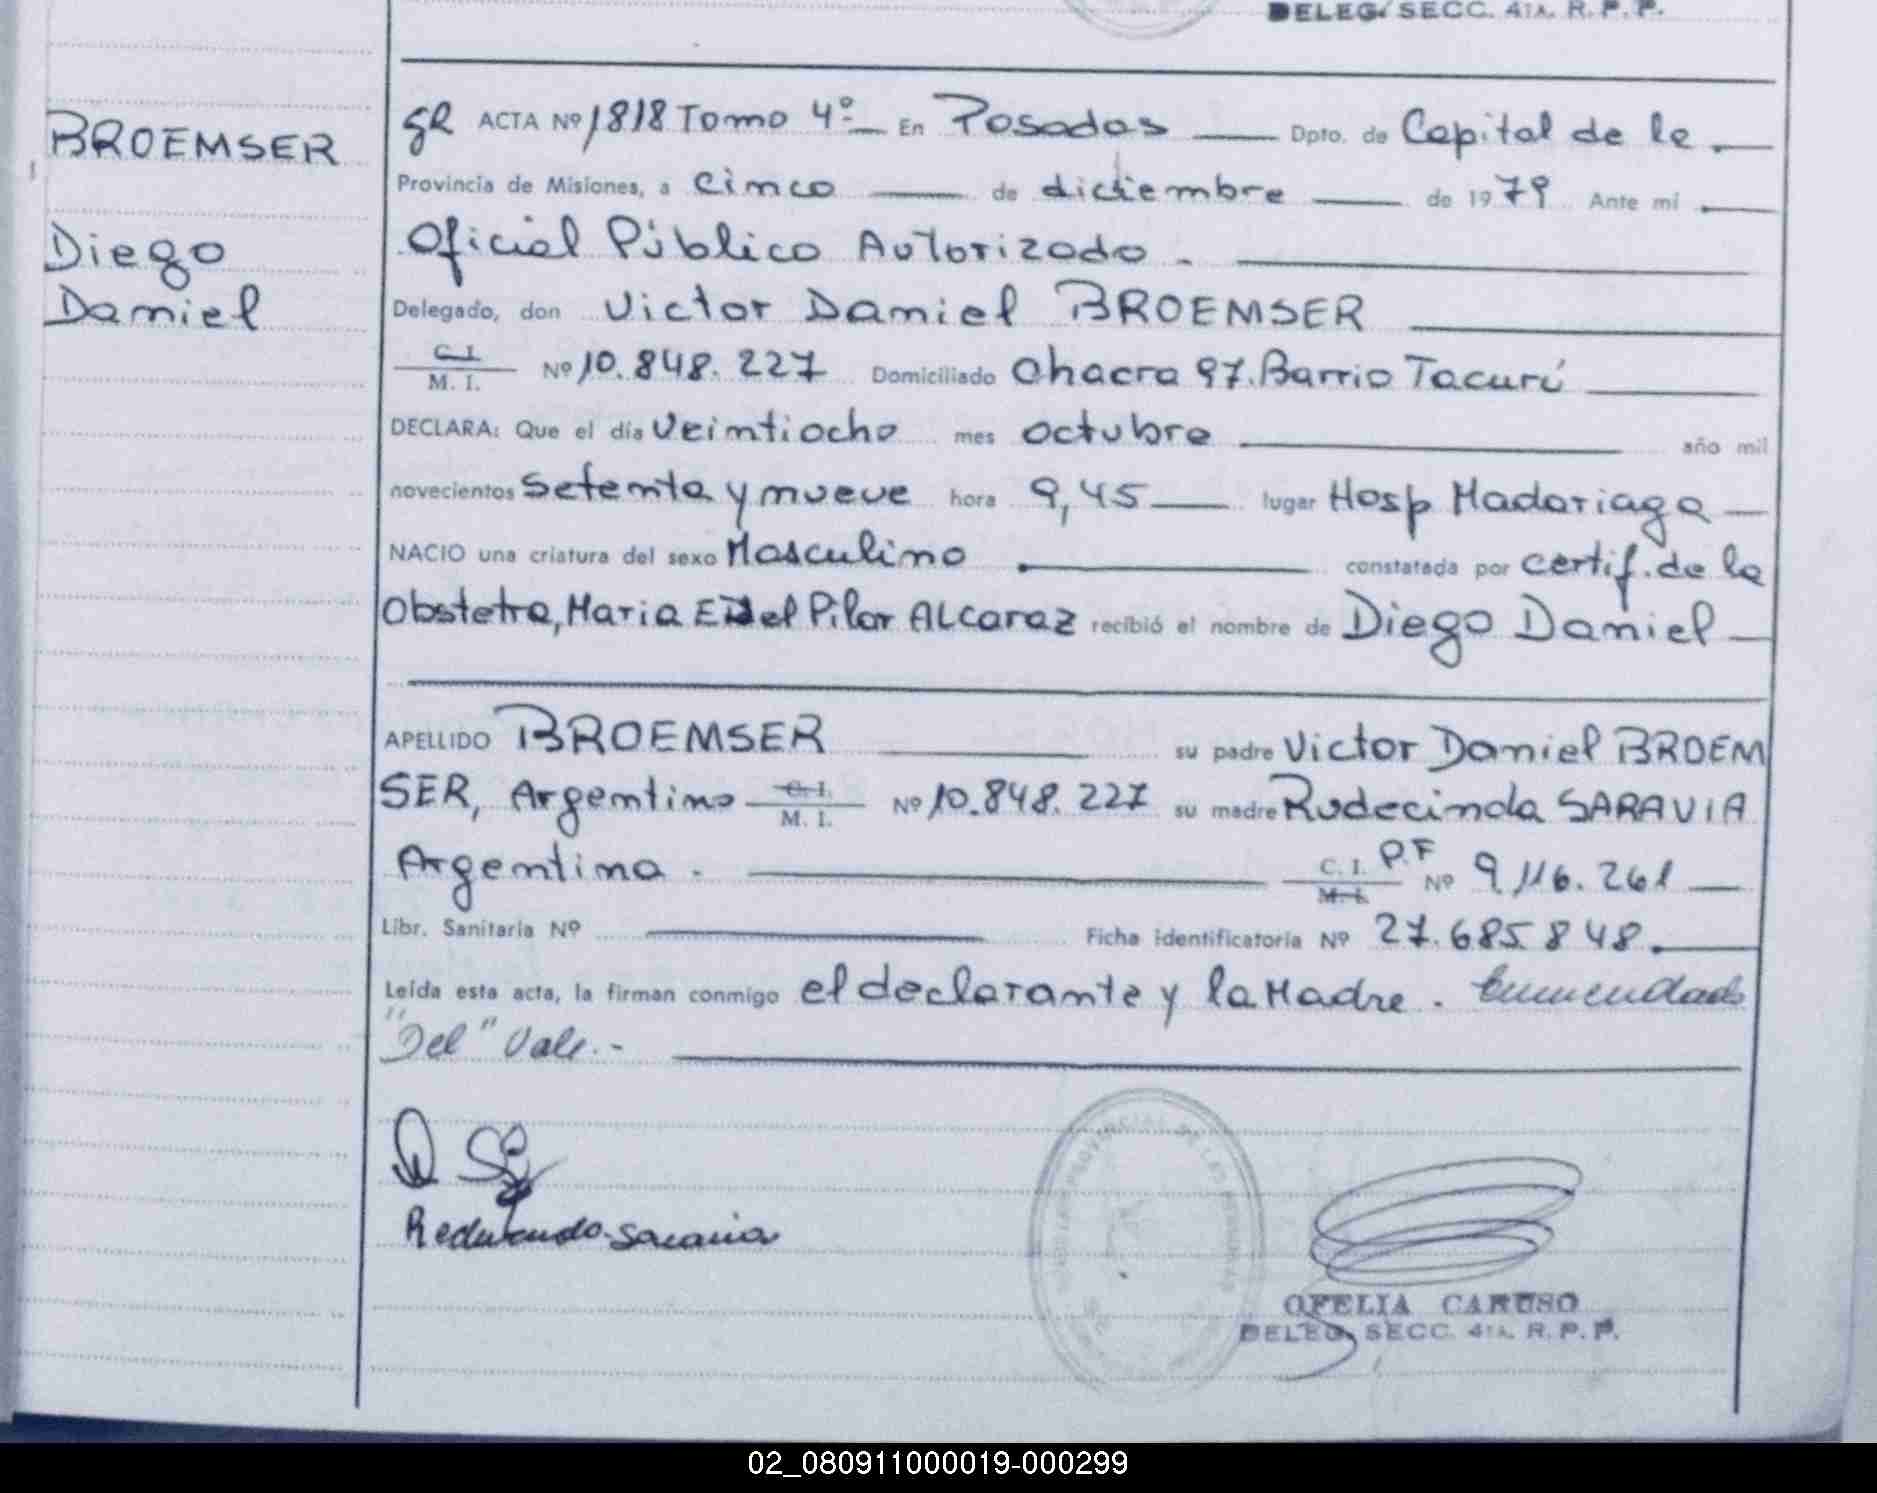 DELEG. SECC. 4TA. R. P. P.
BROEMSER
Diego
Daniel
SR ACTA Nº 1818 Tomo 4º En Posadas Dpto. de Capital de la
Provincia de Misiones, a cinco de diciembre de 1979 Ante mi
Oficial Público Autorizado.
Delegado, don Victor Daniel BROEMSER
C. I. M. I. Nº 10.848.227 Domiciliado Chacra 97. Barrio Tacurú
DECLARA: Que el día Veintiocho mes octubre año mil
novecientos setenta y nueve hora 9,45 lugar Hosp Madariaga
NACIO una criatura del sexo Masculino constatada por certif. de la
Obstetra, Maria E. Del Pilar ALCaraz recibió el nombre de Diego Daniel
APELLIDO BROEMSER su padre Victor Daniel BROEM
SER, Argentino C. I. M. I. Nº 10.848.227 su madre Rudecinda SARAVIA
Argentina. C. I. M. I. P.F Nº 9,116.261
Libr. Sanitaria Nº Ficha identificatoria Nº 27.685848.
Leída esta acta, la firman conmigo el declarante y la Madre. Enmendado
"Del" Vale.-
saravia
OFELIA CARUSO
DELEG. SECC. 4TA. R. P. P.
02_080911000019-000299